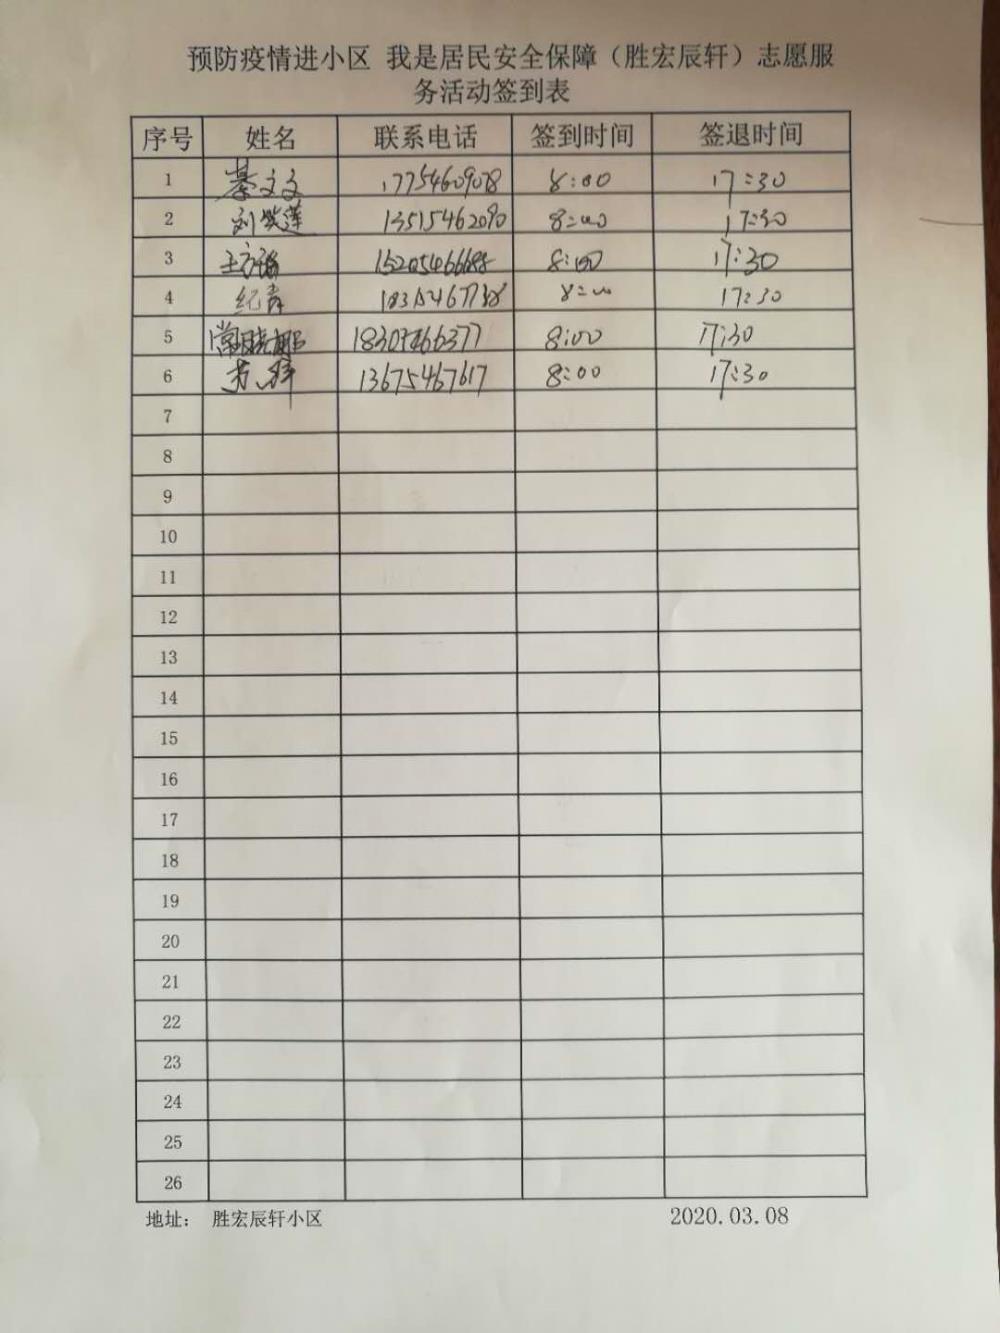 预防疫情进小区 我是居民安全保障（胜宏辰轩）志愿服
务活动签到表
序号 姓名 联系电话 签到时间 签退时间
1 綦文文 17754609078 8:00 17:30
2 刘笑莲 13515462090 8:00 17:30
3 8:00 17:30
4 纪青 8:00 17:30
5 8:00 17:30
6 13675467617 8:00 17:30
7
8
9
10
11
12
13
14
15
16
17
18
19
20
21
22
23
24
25
26
地址： 胜宏辰轩小区 2020.03.08